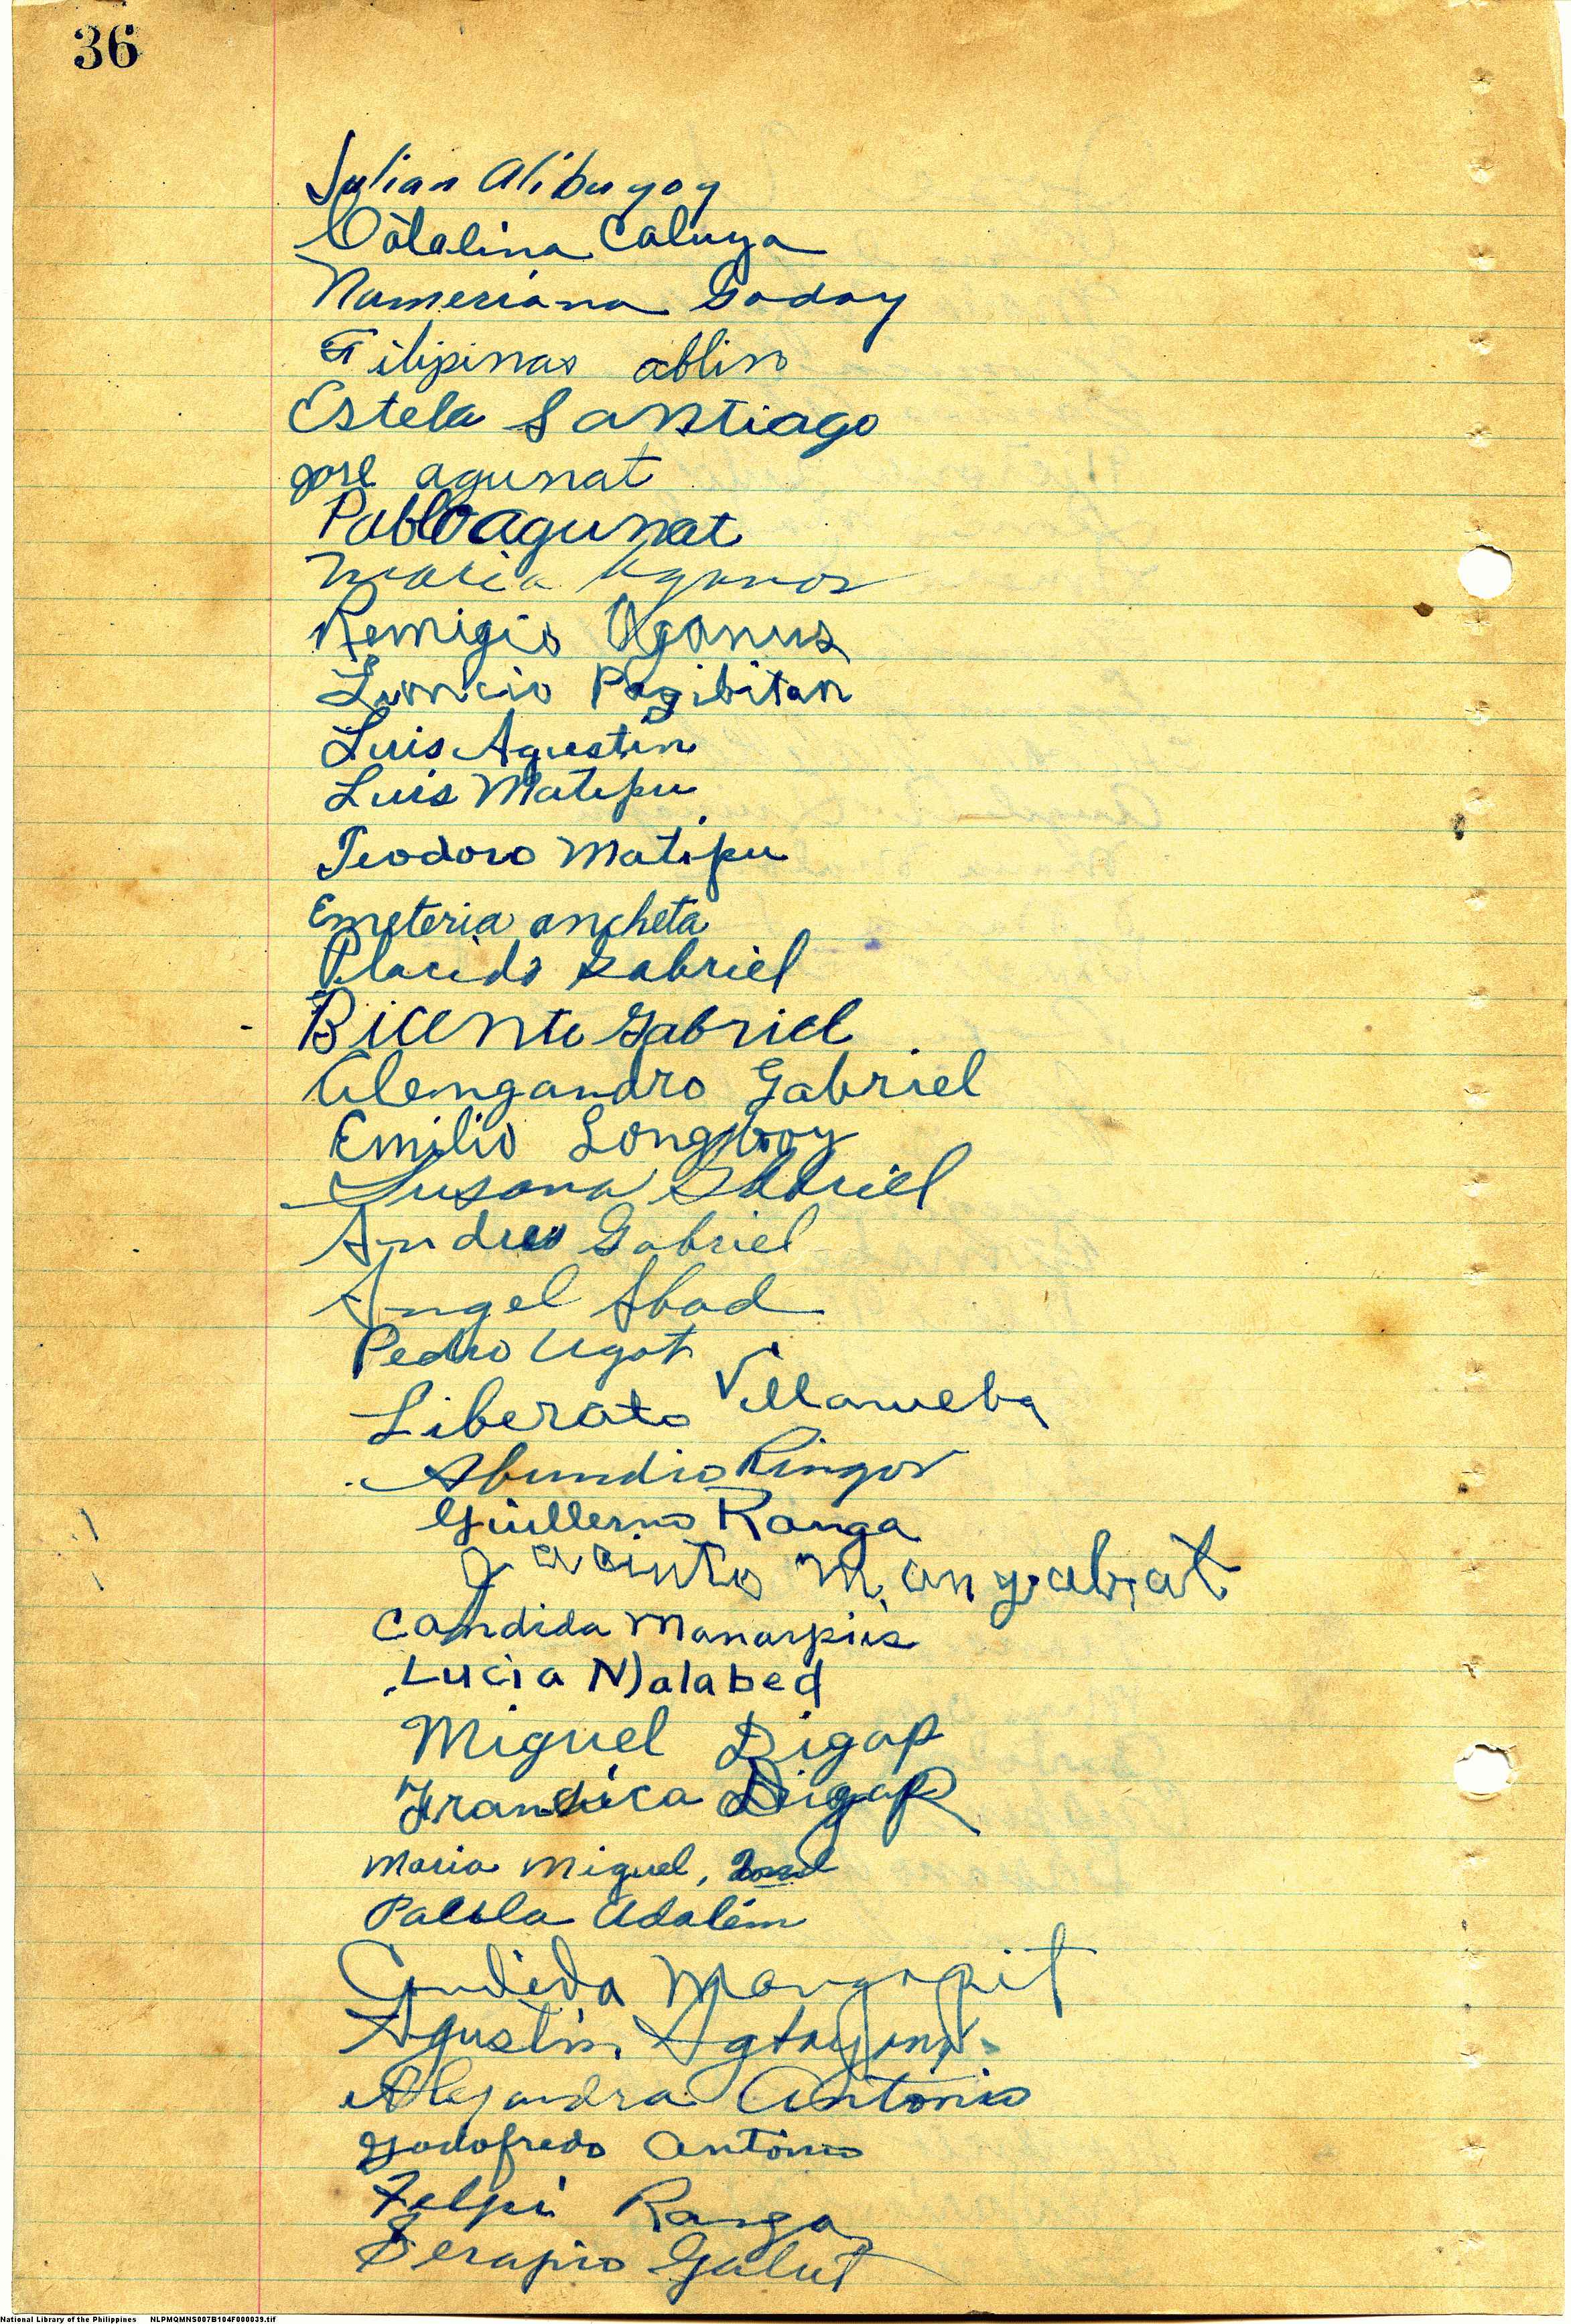 36
Julian Alibuyog
Catalina Caluya
Nameriana Godoy
Filipinas ablin
Estela Santiago
jose agunat
Pablo agunat
Maria Aganos
Remigio Aganus
Luncio Pagibitan
Luis Agustin
Luis Matipu
Teodoro Matipu
Emeteria ancheta
Placido Gabriel
Bicente Gabriel
Alengandro Gabriel
Emilio Longboy
Susana Gabriel
Andres Gabriel
Angel Abad
Pedro Ugot
Liberato Villanueba
Abundio Ringor
Guillermo Ranga
Jacinto Manyabat
Candida Manarpiis
Lucia Malabed
Miguel Digap
Digap
Maria Miguel, 2nd
Adalem
Candida Mangapit
Agustin
Alejandra Antonio
Godofredo Antonio
Felpi Ranga
Serapio Galut
National Library of the Philippines NLPMQMNS007B104F000039.tif